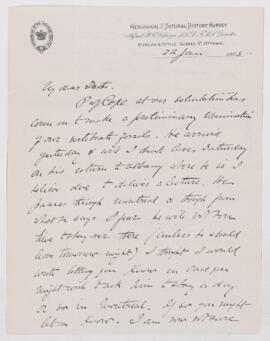 GEOLOGICAL & NATURAL HISTORY SURVEY
Alfred R. C. Selwyn, LL.D., F.R.S., Director
MUSEUM & OFFICE, SUSSEX ST. OTTAWA,
22 Jan 188
My dear
Prof Cope at our solicitation has
come on to make a preliminary examination
of our vertebrate fossils. He arrived
yesterday & will I think leave Saturday
on his return to Albany where he is I
believe due to deliver a lecture. He
passes through Montreal & though from
what he says I fear he will not
have to stay over there (unless he should
leave tomorrow night) I thought I would
write letting you know in case you
might wish to ask him to stay a day
or so in Montreal. If so you might
let me know. I am now not sure